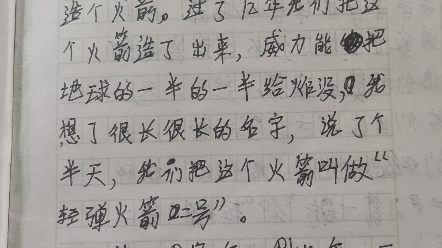 造个火箭。过了12年我们把这
个火箭造了出来，威力能把
地球的一半的一半给炸没，我
想了很长很长的名字，说了个
半天，我们把这个火箭叫做“
轻弹火箭二号”。